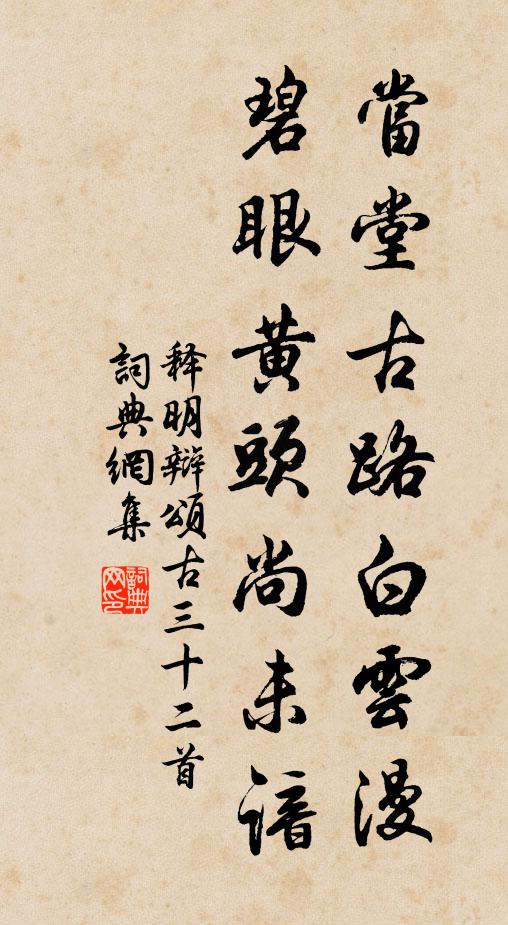 當堂古路白雲漫
碧眼黃頭尚未諳
释明辯頌古三十二首
詞典網集
詞典网印